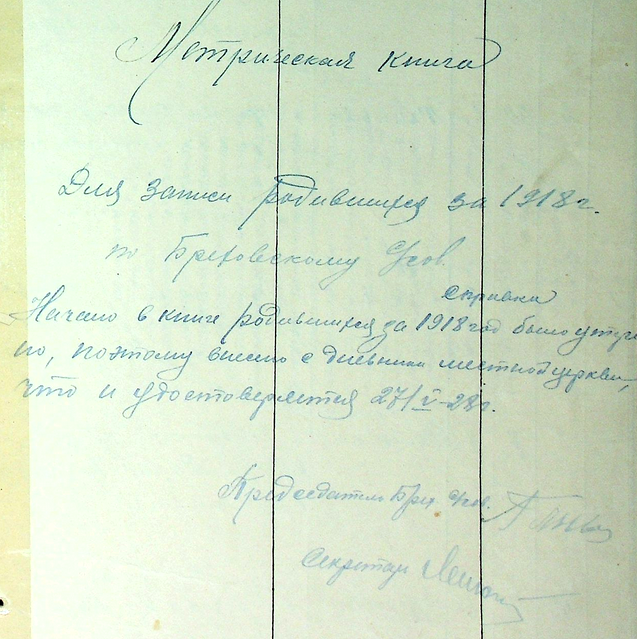 Метрическая книга
Для записи родившихся за 1918 г.
по Бреховскому
Справка
Начало в книге родившихся за 1918 год было
но, поэтому с дневника местной церкви,
что и удостоверяется 27/V-28 г.
Председатель Брех.
Секретарь